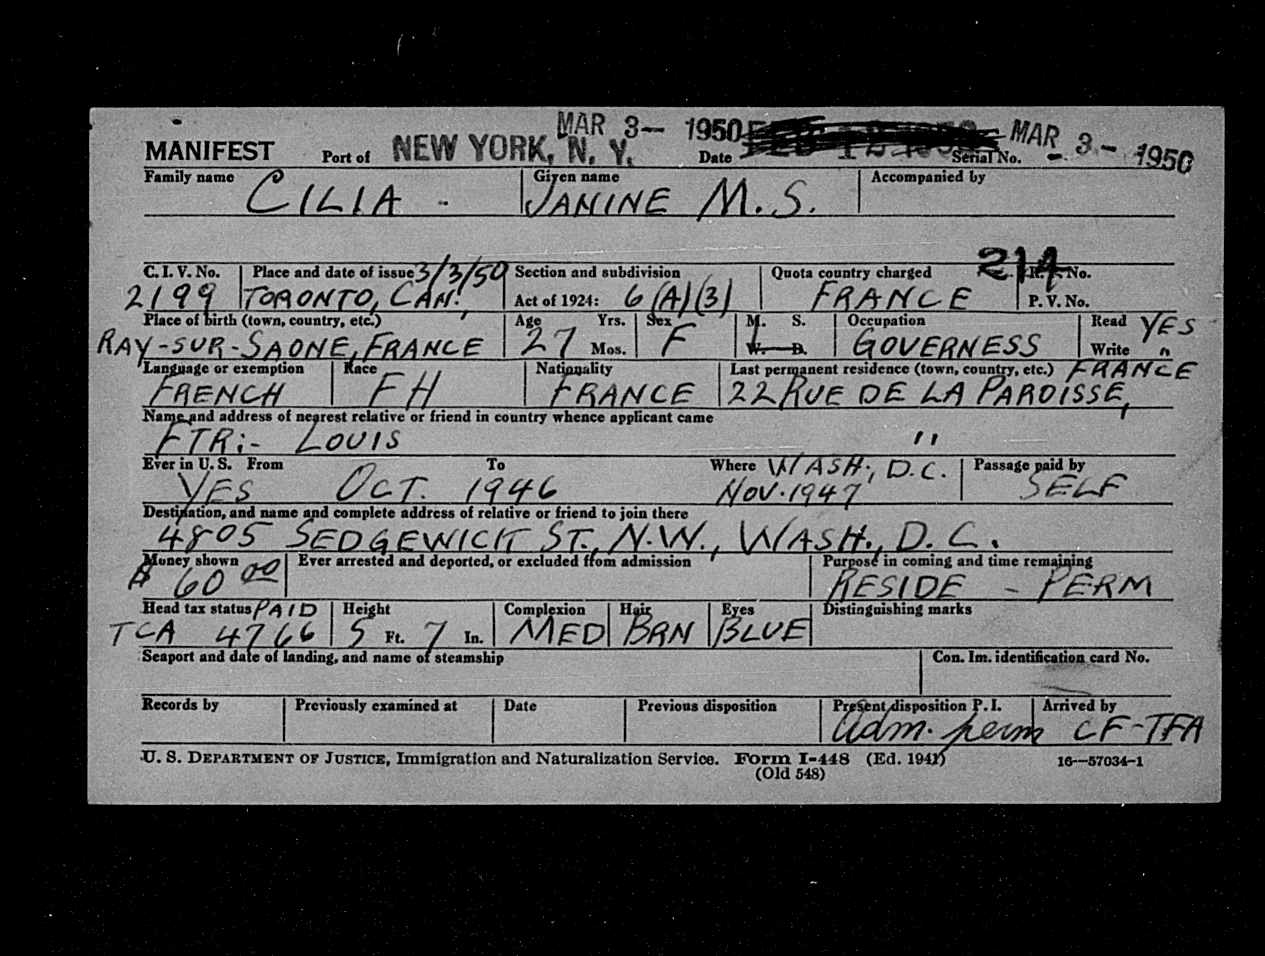 MAR 3- 1950
MANIFEST Port of NEW YORK, N. Y. Date Serial No. MAR 3 - 1950
Family name CILIA - Given name JANINE M.S. Accompanied by
214
C. I. V. No. 2199 Place and date of issue 3/3/50 TORONTO, CAN. Section and subdivision Act of 1924: 6(A)(3) Quota country charged FRANCE No. P. V. No.
Place of birth (town, country, etc.) RAY-SUR-SAONE, FRANCE Age 27 Yrs. Mos. Sex F M. S. W. D. Occupation GOVERNESS Read YES Write "
Language or exemption FRENCH Race FH Nationality FRANCE Last permanent residence (town, country, etc.) FRANCE 22 RUE DE LA PAROISSE,
Name and address of nearest relative or friend in country whence applicant came
FTR:- LOUIS "
Ever in U. S. YES From OCT. 1946 To Where WASH., D.C. NOV. 1947 Passage paid by SELF
Destination, and name and complete address of relative or friend to join there
4805 SEDGEWICK ST., N.W., WASH., D.C.
Money shown $ 60 00 Ever arrested and deported, or excluded from admission Purpose in coming and time remaining RESIDE - PERM
Head tax status PAID TCA 4766 Height 5 Ft. 7 In. Complexion MED Hair BRN Eyes BLUE Distinguishing marks
Seaport and date of landing, and name of steamship Con. Im. identification card No.
Records by Previously examined at Date Previous disposition Present disposition P. I. Adm. perm Arrived by CF-TFA
U. S. DEPARTMENT OF JUSTICE, Immigration and Naturalization Service. Form I-448 (Ed. 1941) 16—57034-1
(Old 548)